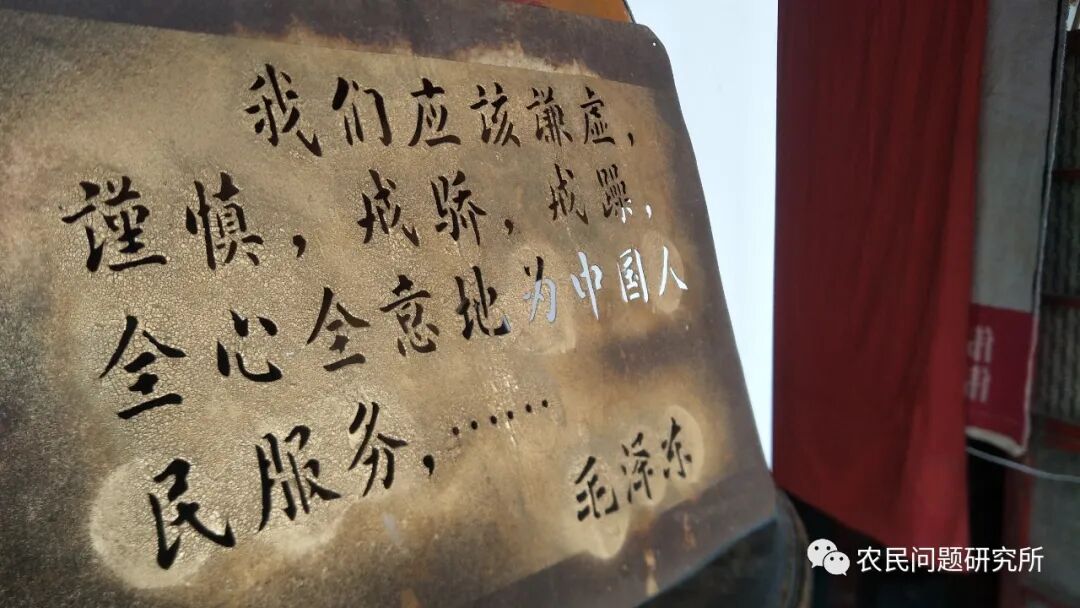 我们应该谦虚，
謹慎，戒骄，戒躁，
全心全意地为中国人
民服务，……
毛泽东
农民问题研究所